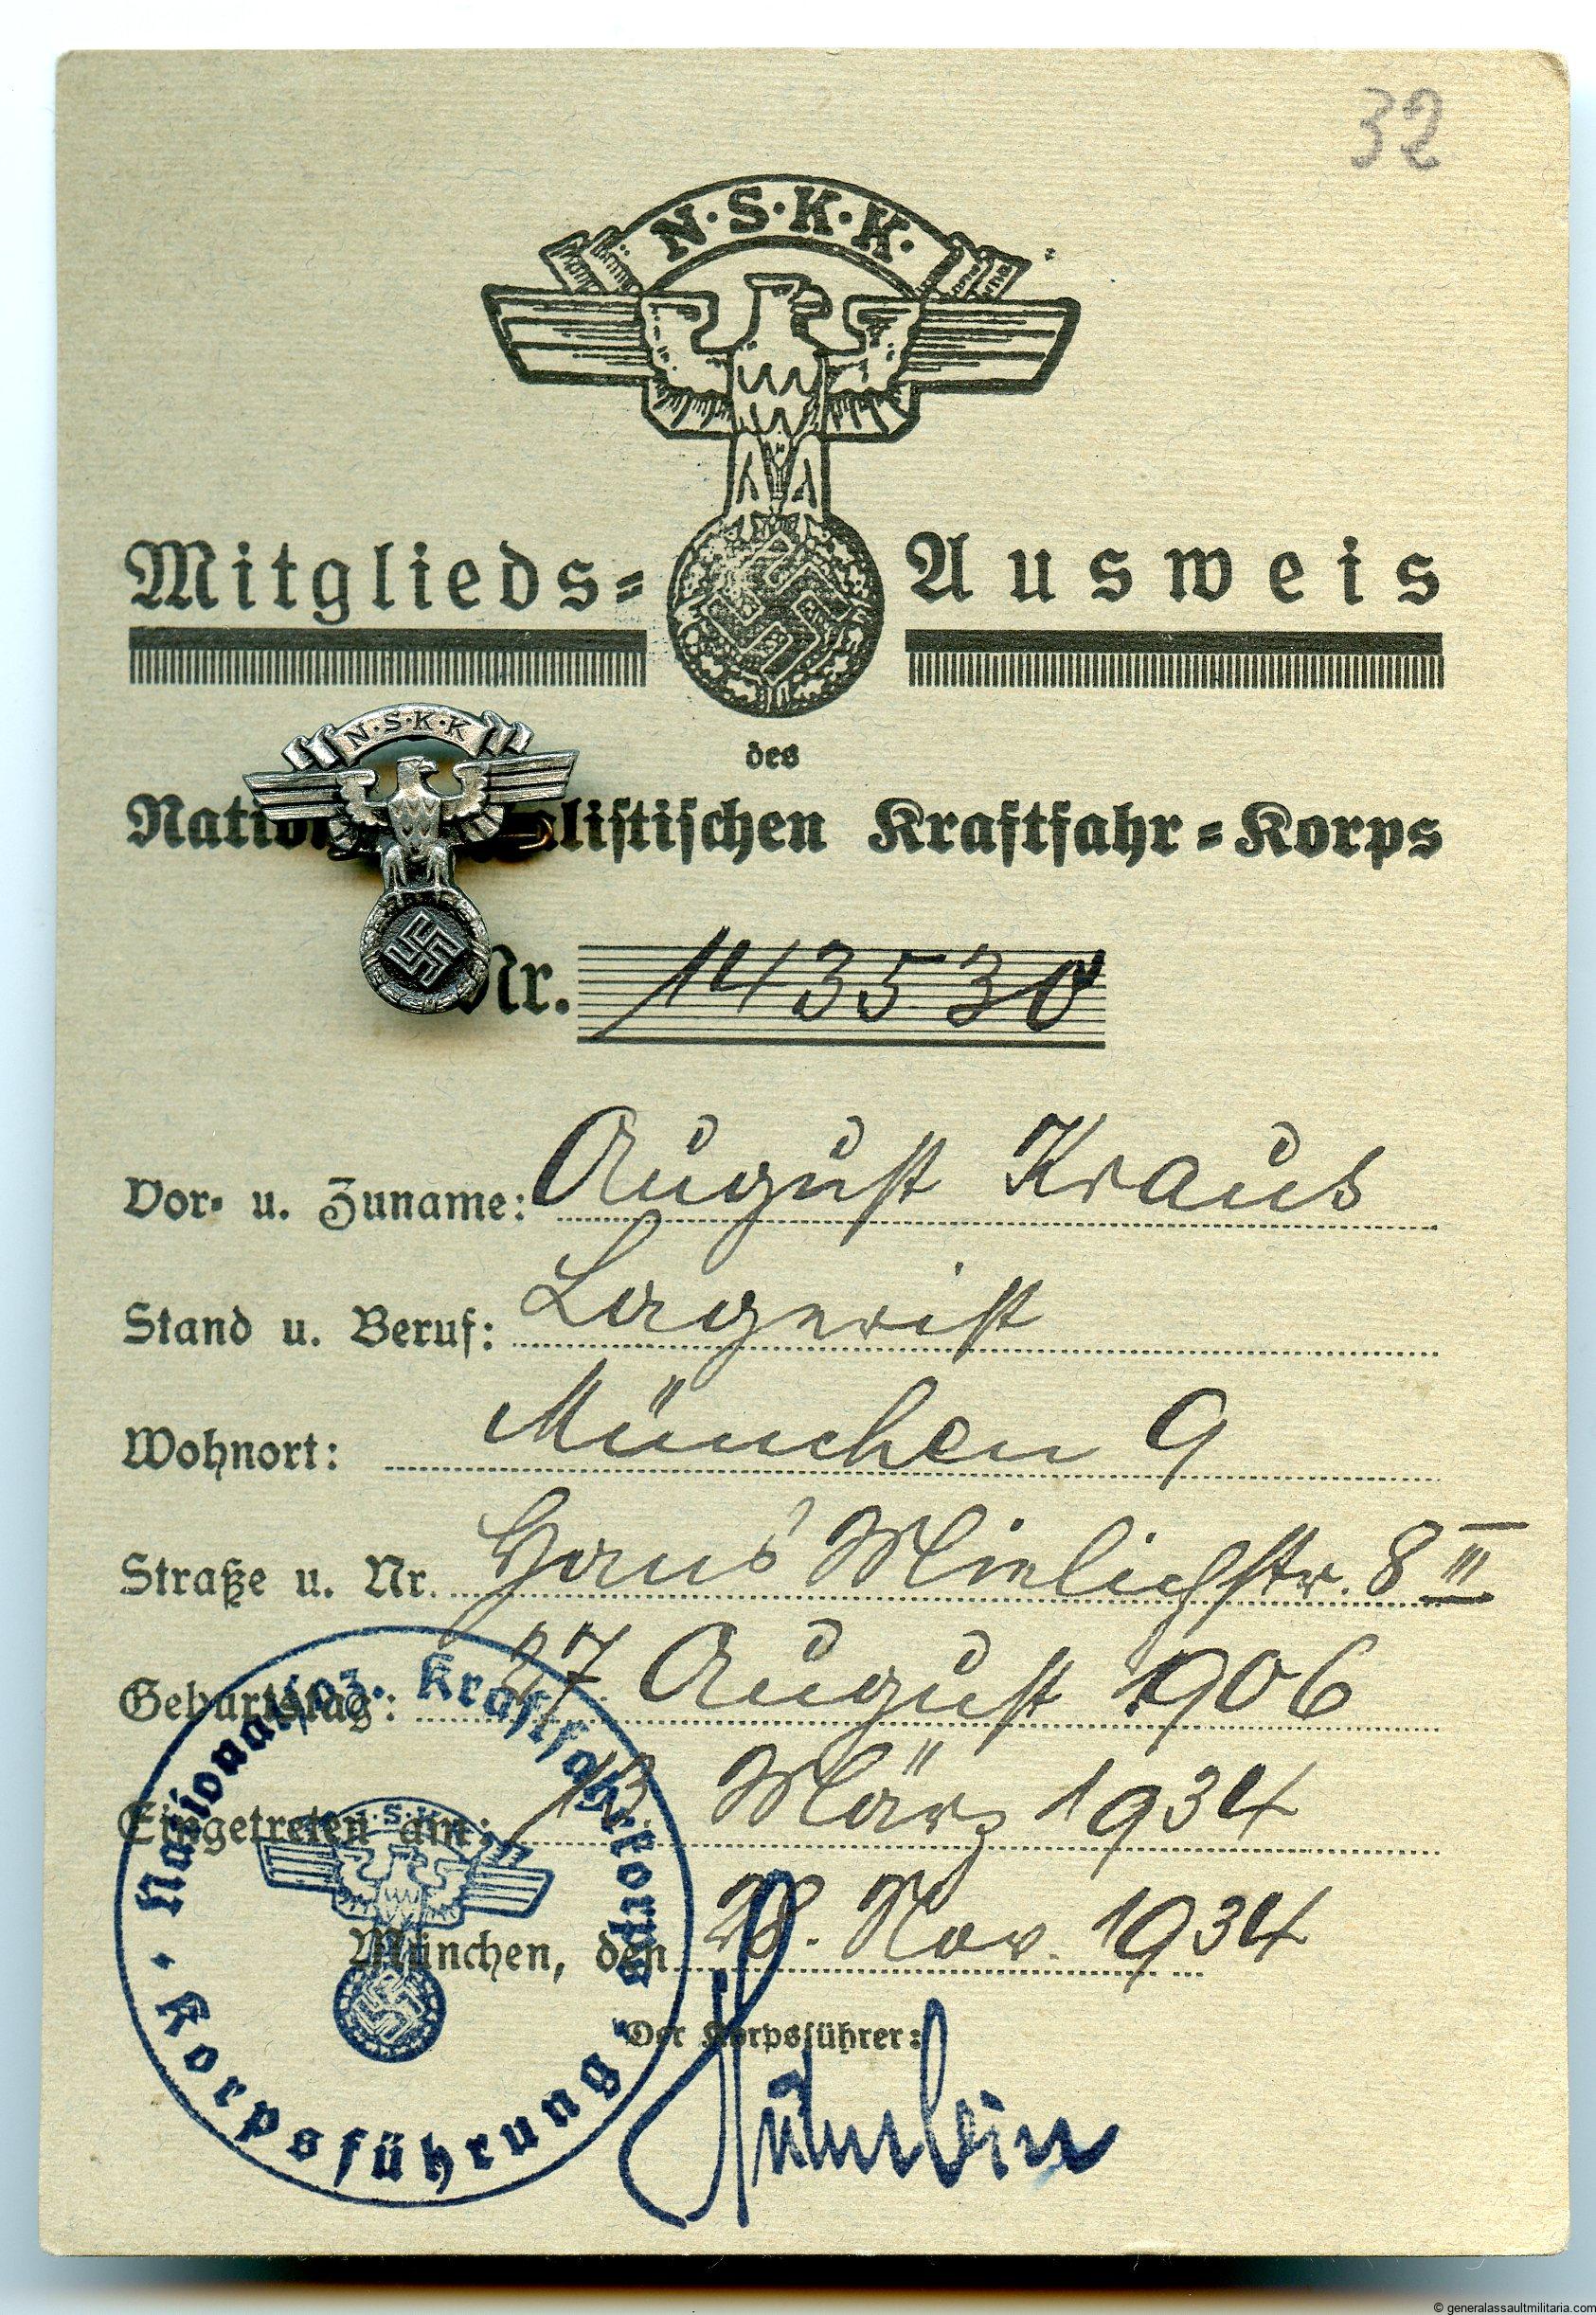 32
N·S·K·K·
Mitglieds= Ausweis
des
N·S·K·K
Nati listischen Kraftfahr=Korps
Nr. 143530
Vor- u. Zuname: August Kraus
Stand u. Beruf: Lagerist
Wohnort: München 9
Straße u. Nr. Hans Mielichstr. 8 III
Geburtstag: 27. August 1906
Eingetreten am: 13. März 1934
München, den 28. Nov. 1934
Der Korpsführer:
Hühnlein
Nationalsoz. Kraftfahrkorps
· Korpsführung ·
N·S·K·K
© generalassaultmilitaria.com